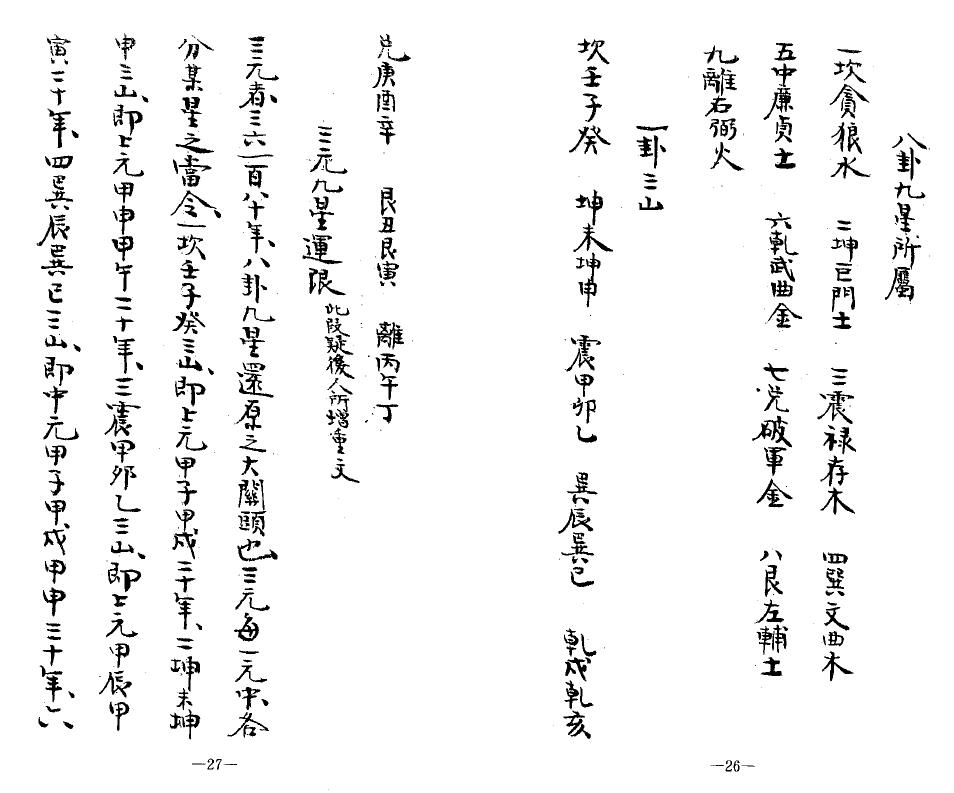 八卦九星所屬
一坎貪狼水　二坤巨門土　三震祿存木　四巽文曲木
五中廉貞土　六乾武曲金　七兌破軍金　八艮左輔土
九離右弼火
一卦三山
坎壬子癸　坤未坤申　震甲卯乙　巽辰巽巳　乾戌乾亥
—26—
兌庚酉辛　艮丑艮寅　離丙午丁
三元九星運限　此段疑後人所增重文
三元者、三六一百八十年、八卦九星還原之大關頭也、三元每一元中、各
分某星之當令、一坎壬子癸三山、即上元甲子甲戌二十年、二坤未坤
申三山、即上元甲申甲午二十年、三震甲卯乙三山、即上元甲辰甲
寅二十年、四巽辰巽巳三山、即中元甲子甲戌甲申三十年、六
—27—